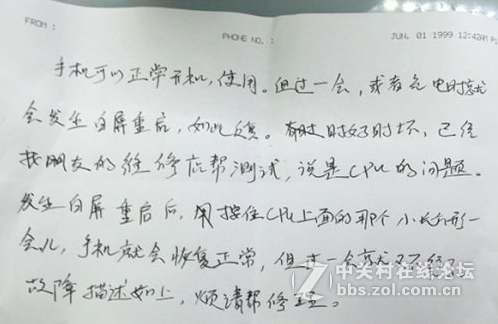 FROM : PHONE NO. : JUN. 01 1999 12:42AM P1
手机可以正常开机,使用。但过一会,或者充电时就
会发生白屏重启,如此反复。有时时好时坏,已经
找朋友的维修店帮测试,说是CPU的问题。
发生白屏重启后,用按住CPU上面的那个小长方形一
会儿,手机就会恢复正常,但过一会就又不行了
故障描述如上,烦请帮修理。
中关村在线论坛
bbs.zol.com.cn